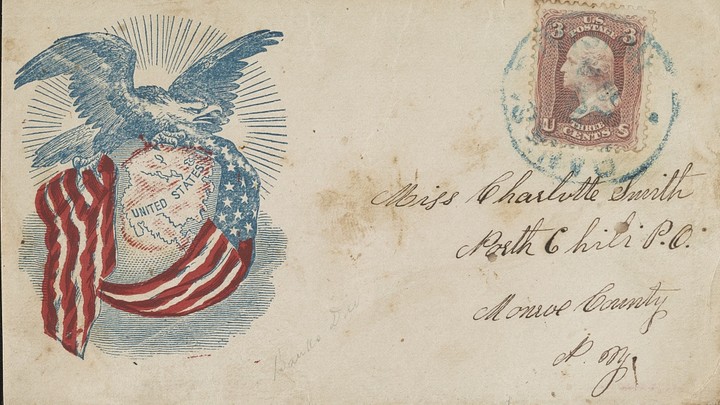 3 U.S. 3
POSTAGE
THREE
U CENTS S
UNITED STATES
Miss Charlotte Smith
North Chili P.O.
Monroe County
N. Y.